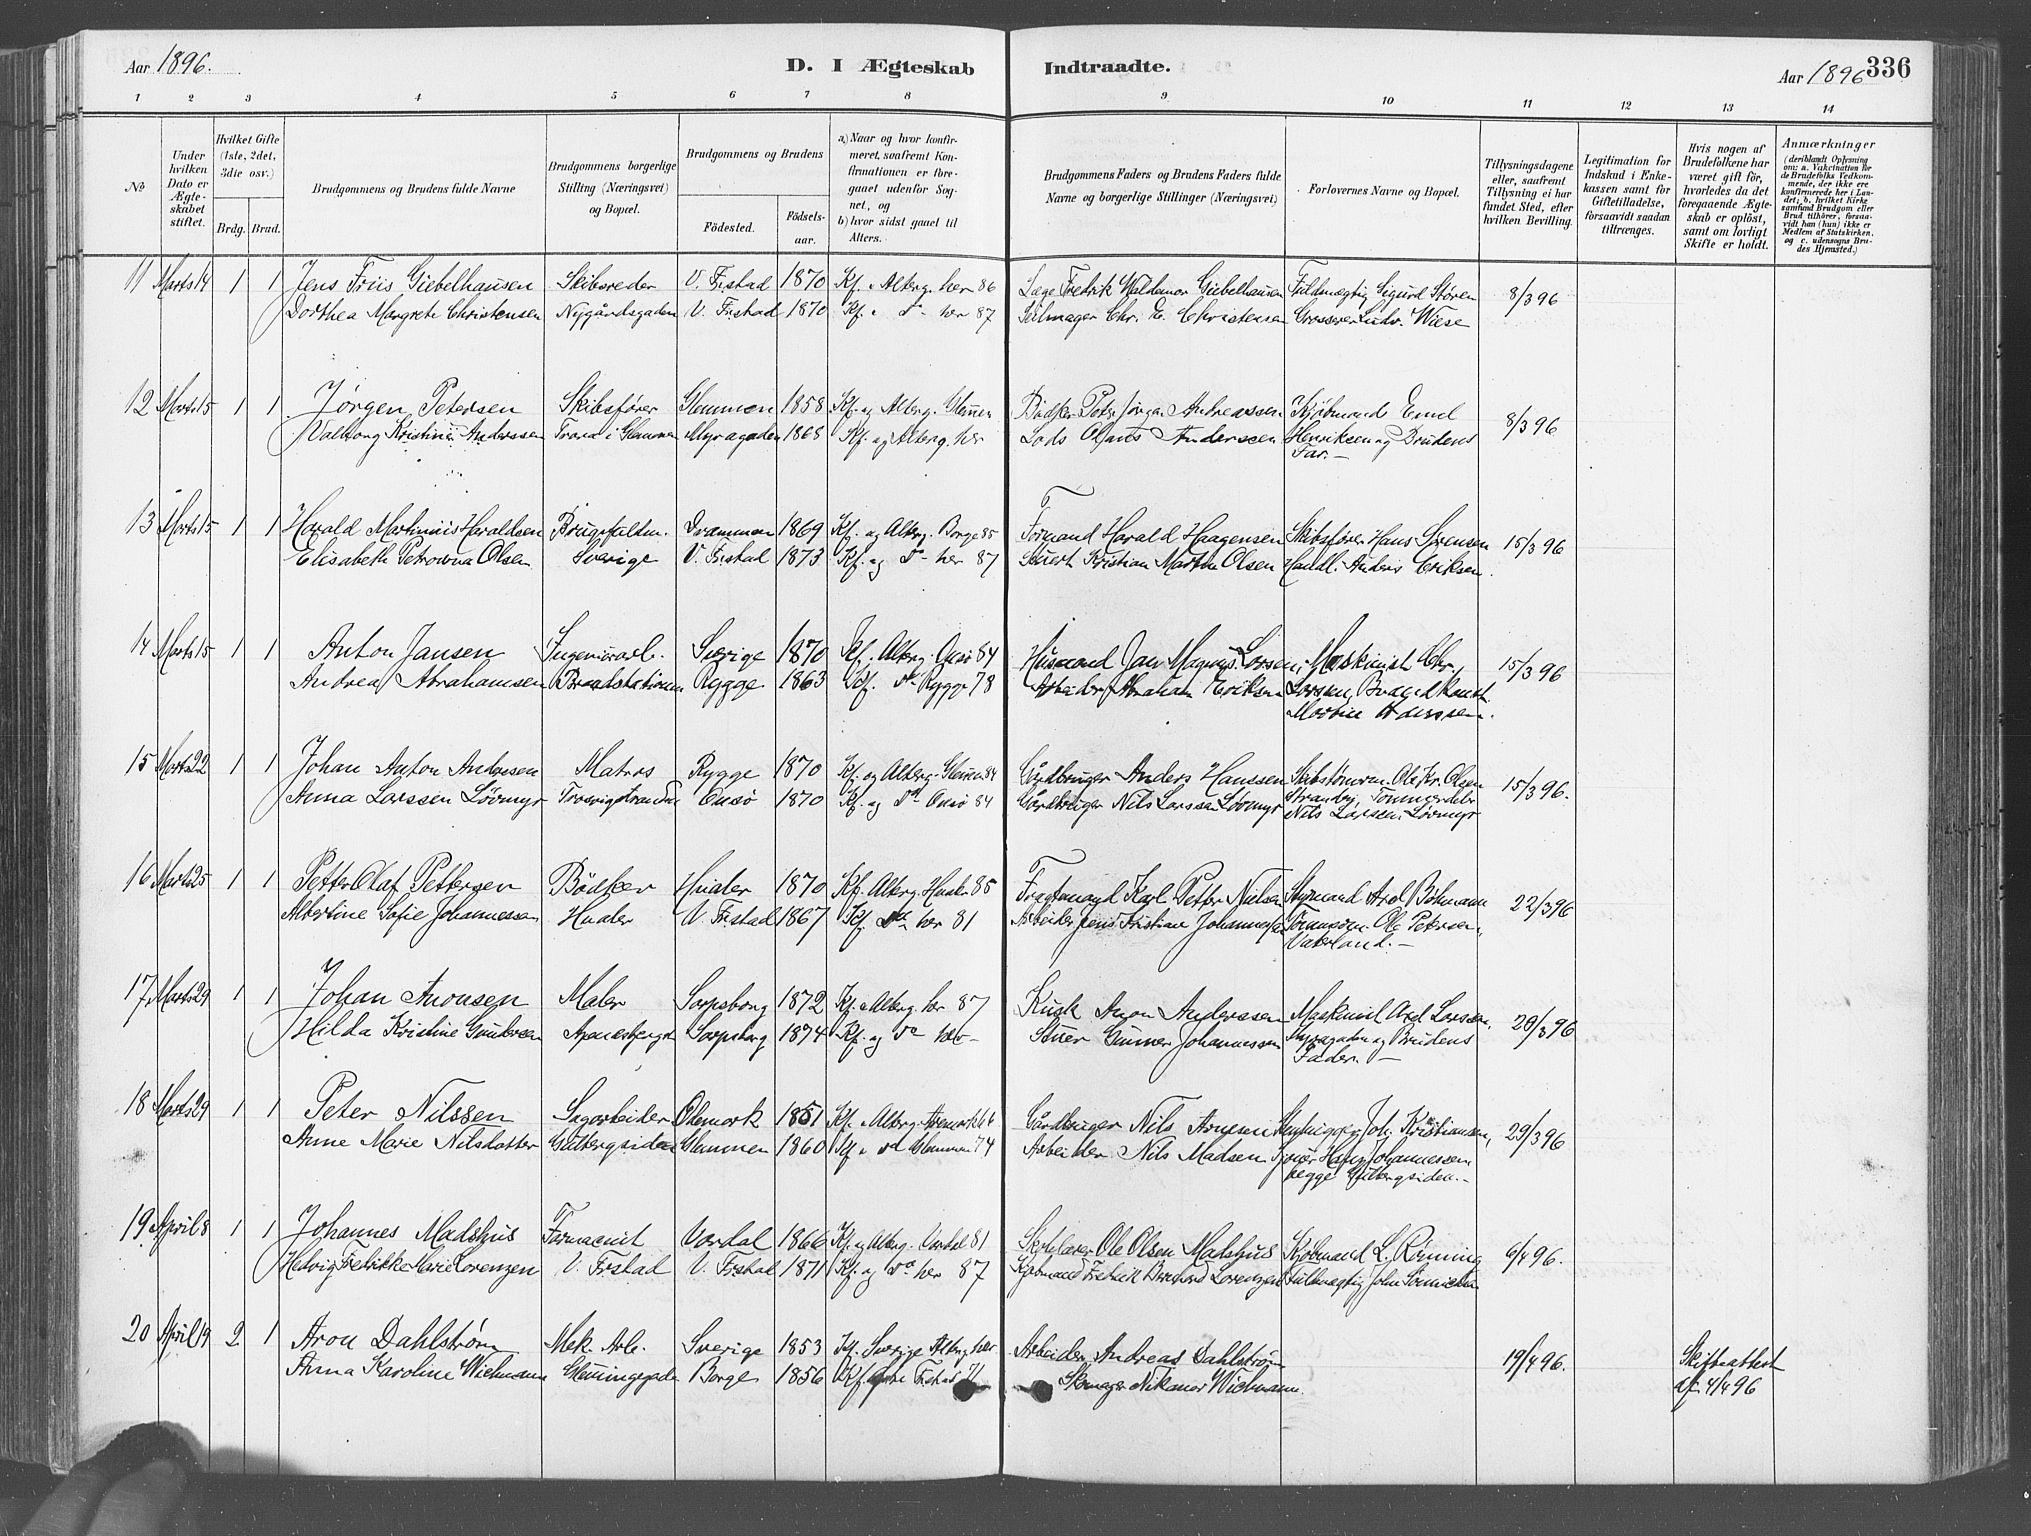 Aar 1896.
D. I Ægteskab
Indtraadte.
Aar 1896
336
1 2 3 4 5 6 7 8
9 10 11 12 13 14
No
Under hvilken Dato er Ægteskabet stiftet.
Hvilket Gifte (1ste, 2det, 3die osv.)
Brdg. Brud.
Brudgommens og Brudens fulde Navne
Brudgommens borgerlige Stilling (Næringsvei) og Bopæl.
Brudgommens og Brudens
Fødested.
Fødsels-aar.
a) Naar og hvor konfirmeret, saafremt Konfirmationen er foregaaet udenfor Sognet, og
b) hvor sidst gaaet til Alters.
Brudgommens Faders og Brudens Faders fulde Navne og borgerlige Stillinger (Næringsvei)
Forlovernes Navne og Bopæl.
Tillysningsdagene eller, saafremt Tillysning ei har fundet Sted, efter hvilken Bevilling.
Legitimation for Indskud i Enkekassen samt for Giftetilladelse, forsaavidt saadan tiltrænges.
Hvis nogen af Brudefolkene har været gift før, hvorledes da det foregaaende Ægteskab er opløst, samt om lovligt Skifte er holdt.
Anmærkninger
(deriblandt Oplysning om: a. Vakcination for de Brudefolks Vedkommende, der ikke ere konfirmerede her i Landet; b. hvilket Kirkesamfund Brudgom eller Brud tilhører, forsaavidt han (hun) ikke er Medlem af Statskirken, og c. udensogns Brudes Hjemsted.)
11 Marts 14 1 1 Jens Friis Giebelhausen Skibsreder V. Frstad 1870 Kf. Alterg. her 86 Læge Fredrik Waldemar Giebelhausen Fuldmægtig Sigurd Støren 8/3 96
Dorthea Margrete Christensen Nygårdsgaden V. Frstad 1870 Kf. do her 87 Chr. E. Christensen Grosserer Ludv. Wiese
12 Marts 15 1 1 Jørgen Petersen Skibsfører Glemmen 1858 Kf. og Alterg. Glemen Bødker Jørgen Andreassen Kjøbmand Emil 8/3 96
Valborg Kristine Anderssen Trara i Glemmen Myragaden 1868 Kf. og Alterg. her Lods Anderssen Henriksen og Brudens
Far. –
13 Marts 15 1 1 Harald Martinius Haraldsen Drammen 1869 Kf. og Alterg. Borge 85 Formand Harald Haagensen Skibsfører Hans Sørensen 15/3 96
Elisabeth Petrowna Olsen Sverige V. Frstad 1873 Kf. og do her 87 Kristian Martin Olsen Handl. Anders Eriksen.
14 Marts 15 1 1 Anton Jansen Sverige 1870 Kf. Alterg. Onsø 84 Husmand Jan Magnus Larsen, Maskinist Chr. 15/3 96
Andrea Abrahamsen Brandstationen Rygge 1863 Kf. do Rygge 78 Arbeider Abraham Eriksen Larsen,
15 Marts 22 1 1 Johan Anton Andersen Matros Rygge 1870 Kf. og Alterg. Glemmen 84 Gårdbruger Anders Hanssen Ole Kr. Olsen 15/3 96.
Anna Larssen Løvmyr Onsø 1870 Kf. og do Onsø 84 Gårdbruger Nils Larssen Løvmyr
Nils Larssen Løvmyr
16 Marts 25 1 1 Petter Olaf Pettersen Bødker Hvaler 1870 Kf. Alterg. Hvaler 85 Karl Petter Nilsen Styrmand Axel Böhmann 22/3 96
Albertine Sofie Johannessen Hvaler V. Frstad 1867 Kf. do her 81 Arbeider Jens Kristian Johannessen Ole Petersen,
Vaterland. –
17 Marts 29 1 1 Johan Aronsen Maler Sarpsborg 1872 Kf. Alterg. her 87 Kusk Aron Anderssen Maskinist Axel Larssen, 20/3 96
Hilda Kristine Sarpsborg 1874 Kf. og do her Stuer Gunner Johannessen Myragaden og Brudens
Fader. –
18 Marts 29 1 1 Peter Nilssen Sagarbeider 1851 Kf. Alterg. Gårdbruger Nils Arnesen Joh. Kristiansen, 29/3 96
Anne Marie Nilsdatter Gudbergsiden Glemmen 1860 Kf. do Glemmen 74 Arbeider Nils Madsen Hans Johannessen
begge Gudbergsiden. –
19 April 8 1 1 Johannes Madshus Farmaceut Værdal 1866 Kf. og Alterg. Værdal 81 Ole Olsen Madshus Kjøbmand L. Rønning 6/4 96.
Hedvig Fredrikke Marie Lorenzen V. Frstad V. Frstad 1871 Kf. og do her 87 Kjøbmand Fredrik Bernhard Lorenzen Fuldmægtig John
20 April 19 2 1 Aron Dahlstrøm Mek. Arb. Sverige 1853 Kf. Sverige Alterg. her Arbeider Andreas Dahlstrøm 19/4 96. Skifteattest
Anna Karoline Wichmann Borge 1856 Kf. Frstad 71 Skomager Nikanor Wichmann. af 4/4 96